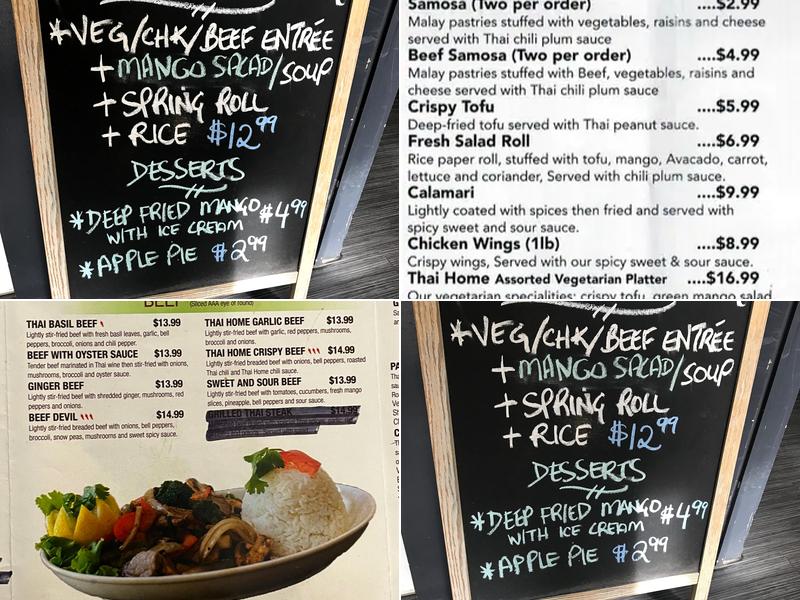 *VEG/CHK/BEEF ENTRÉE
+ MANGO SALAD/SOUP
+ SPRING ROLL
+ RICE $12.99
DESSERTS
*DEEP FRIED MANGO $4.99
WITH ICE CREAM
*APPLE PIE $2.99
Samosa (Two per order) ....$2.99
Malay pastries stuffed with vegetables, raisins and cheese
served with Thai chili plum sauce
Beef Samosa (Two per order) ....$4.99
Malay pastries stuffed with Beef, vegetables, raisins and
cheese served with Thai chili plum sauce
Crispy Tofu ....$5.99
Deep-fried tofu served with Thai peanut sauce.
Fresh Salad Roll ....$6.99
Rice paper roll, stuffed with tofu, mango, Avacado, carrot,
lettuce and coriander, Served with chili plum sauce.
Calamari ....$9.99
Lightly coated with spices then fried and served with
spicy sweet and sour sauce.
Chicken Wings (1lb) ....$8.99
Crispy wings, Served with our spicy sweet & sour sauce.
Thai Home Assorted Vegetarian Platter ....$16.99
Our vegetarian specialities: crispy tofu, green mango salad
BEEF (Sliced AAA eye of round)
THAI BASIL BEEF $13.99
Lightly stir-fried beef with fresh basil leaves, garlic, bell
peppers, broccoli, onions and chili pepper.
BEEF WITH OYSTER SAUCE $13.99
Tender beef marinated in Thai wine then stir-fried with onions,
mushrooms, broccoli and oyster sauce.
GINGER BEEF $13.99
Lightly stir-fried beef with shredded ginger, mushrooms, red
peppers and onions.
BEEF DEVIL $14.99
Lightly stir-fried breaded beef with onions, bell peppers,
broccoli, snow peas, mushrooms and sweet spicy sauce.
THAI HOME GARLIC BEEF $13.99
Lightly stir-fried beef with garlic, red peppers, mushrooms,
broccoli and onions.
THAI HOME CRISPY BEEF $14.99
Lightly stir-fried breaded beef with onions, bell peppers, roasted
Thai chili and Thai Home chili sauce.
SWEET AND SOUR BEEF $13.99
Lightly stir-fried beef with tomatoes, cucumbers, fresh mango
slices, pineapple, bell peppers and sour sauce.
GRILLED THAI STEAK $14.99
*VEG/CHK/BEEF ENTRÉE
+ MANGO SALAD/SOUP
+ SPRING ROLL
+ RICE $12.99
DESSERTS
*DEEP FRIED MANGO $4.99
WITH ICE CREAM
*APPLE PIE $2.99